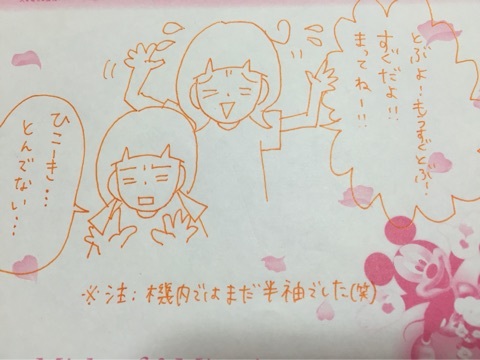 とぶよーもうすぐとぶー
すぐだよ!!
まってねー!!
ひこーき…
とんでない…
※注:機内ではまだ半袖でした(笑)